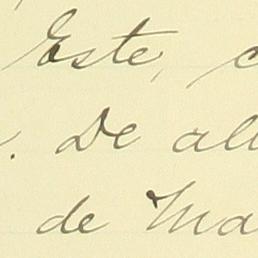 Este,
. De all
de Ma